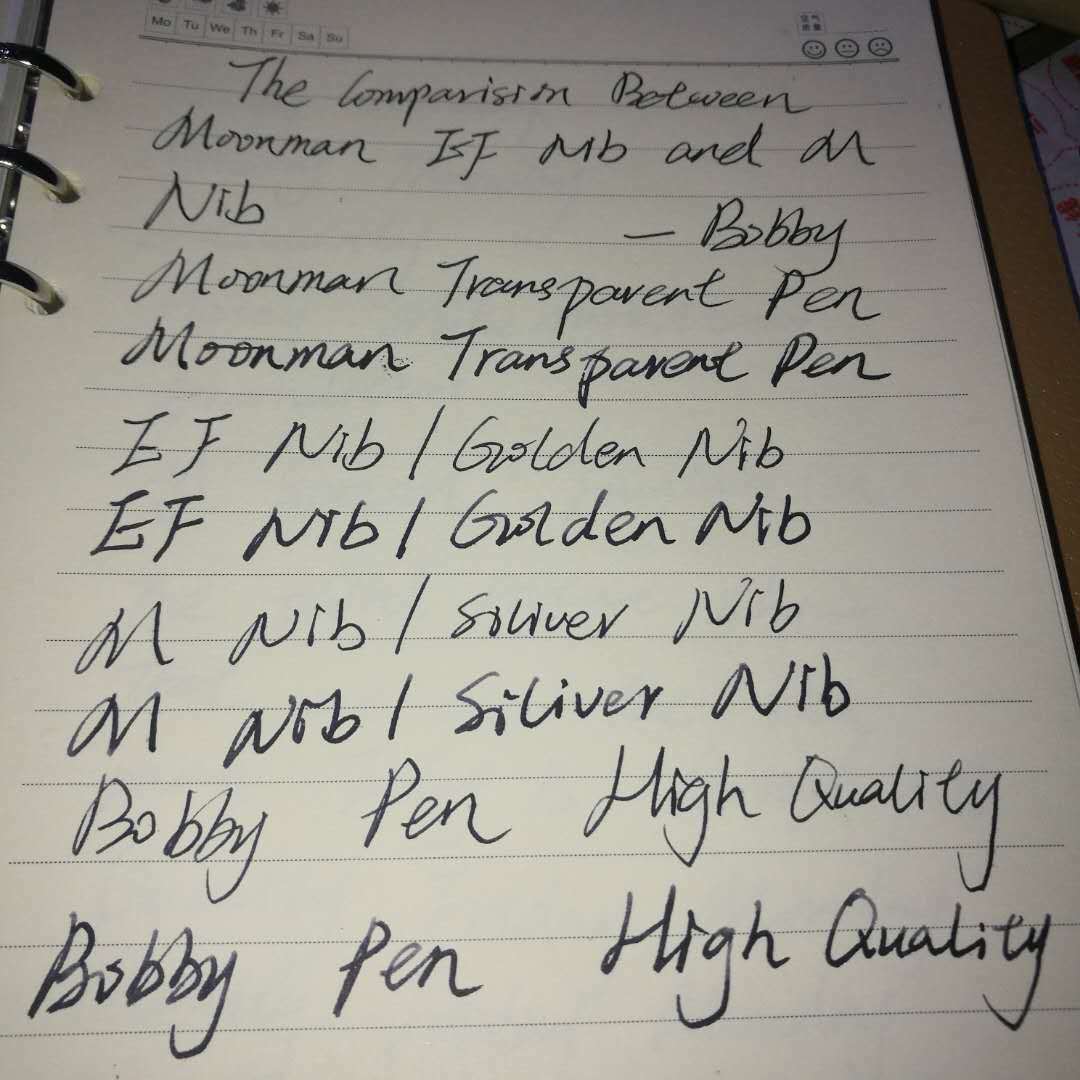 Mo Tu We Th Fr Sa Su
空气
质量
The Comparision Between
Moonman EF Nib and M
Nib
— Bobby
Moonman Transparent Pen
Moonman Transparent Pen
EF Nib / Golden Nib
EF Nib / Golden Nib
M Nib / Siliver Nib
M Nib / Siliver Nib
Bobby Pen High Quality
Bobby Pen High Quality